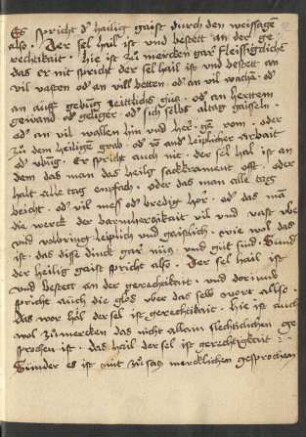 Es spricht dˀ hailig gaist durch den weissage
also. Der sel hail ist und bestett an der ge
rechtikait. hie ist zu mercken gar fleissigcliche
das er nit spricht der sel hail ist und bestett an
vil vasten odˀ an vil betten. odˀ an vil wachen. odˀ
an auff gebung zeittlichs guts. odˀ an hertem
gewand odˀ geliger odˀ sich selbs altag gaiseln.
odˀ an vil wallen hin und her. gen rom. oder
zu dem heiligen grab. odˀ an leiplicher arbait
odˀ übung. Er spricht auch nit. der sel hail ist an
dem das man das heilig sackrament offt. oder
alle tag empfach. oder das man alle tag
beicht. odˀ vil mess odˀ bredig hör. odˀ das man
die werck der barmhertzikait vil und vast übe
und volbring leiplich und gaistlich. wie wol das
ist. das dise dinck gar nütz und gut sind. Sunder
der heilig gaist spricht also. Der sel hail ist
und bestett an der gerechtikait. und dorumb
spricht auch die glos über das selb wort also.
Das wor hail der sel ist gerechtikait. hie ist auch
wol zu mercken das nicht allain schlechtlichen ge
sprochen ist. Das hail der sel ist gerechtigkait:
Sunder es ist mit zu satz mercklichen gesprochen